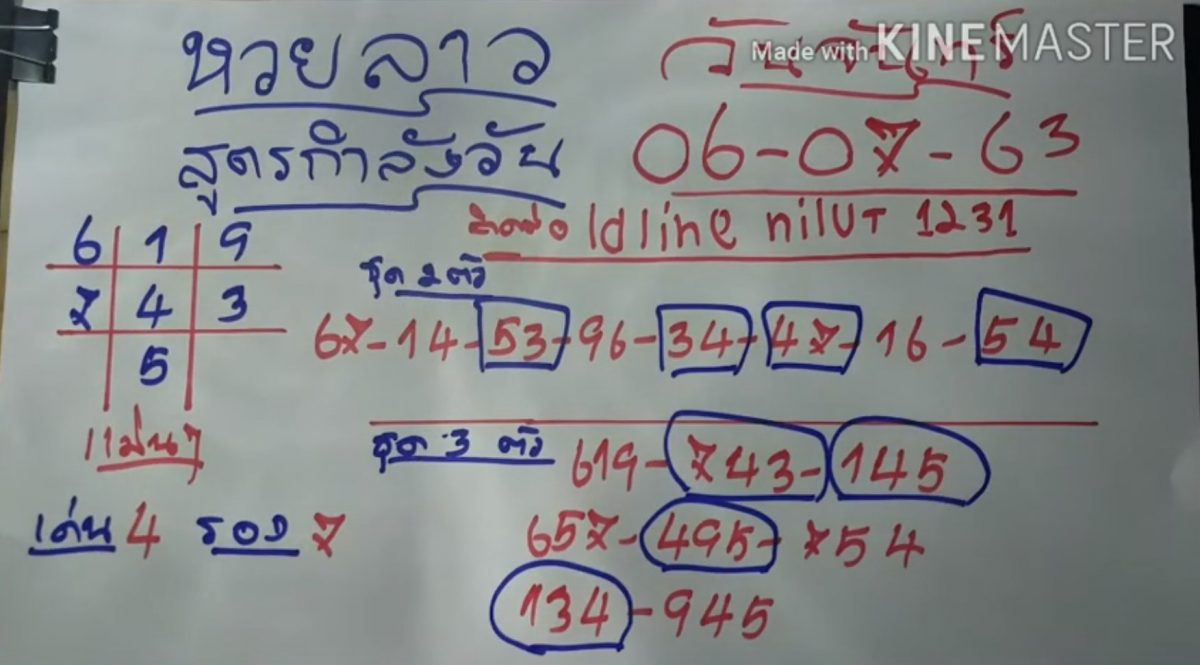 หวยลาว
วันจันทร์
Made with KINEMASTER
สูตรกำลังวัน
06-07-63
ติดต่อ Idline nilUT 1231
6 1 9
7 4 3
5
แม่นๆ
เด่น 4 รอง 7
ชุด 2 ตัว
67-14-53-96-34-47-16-54
ชุด 3 ตัว
619-743-145
657-495-754
134-945